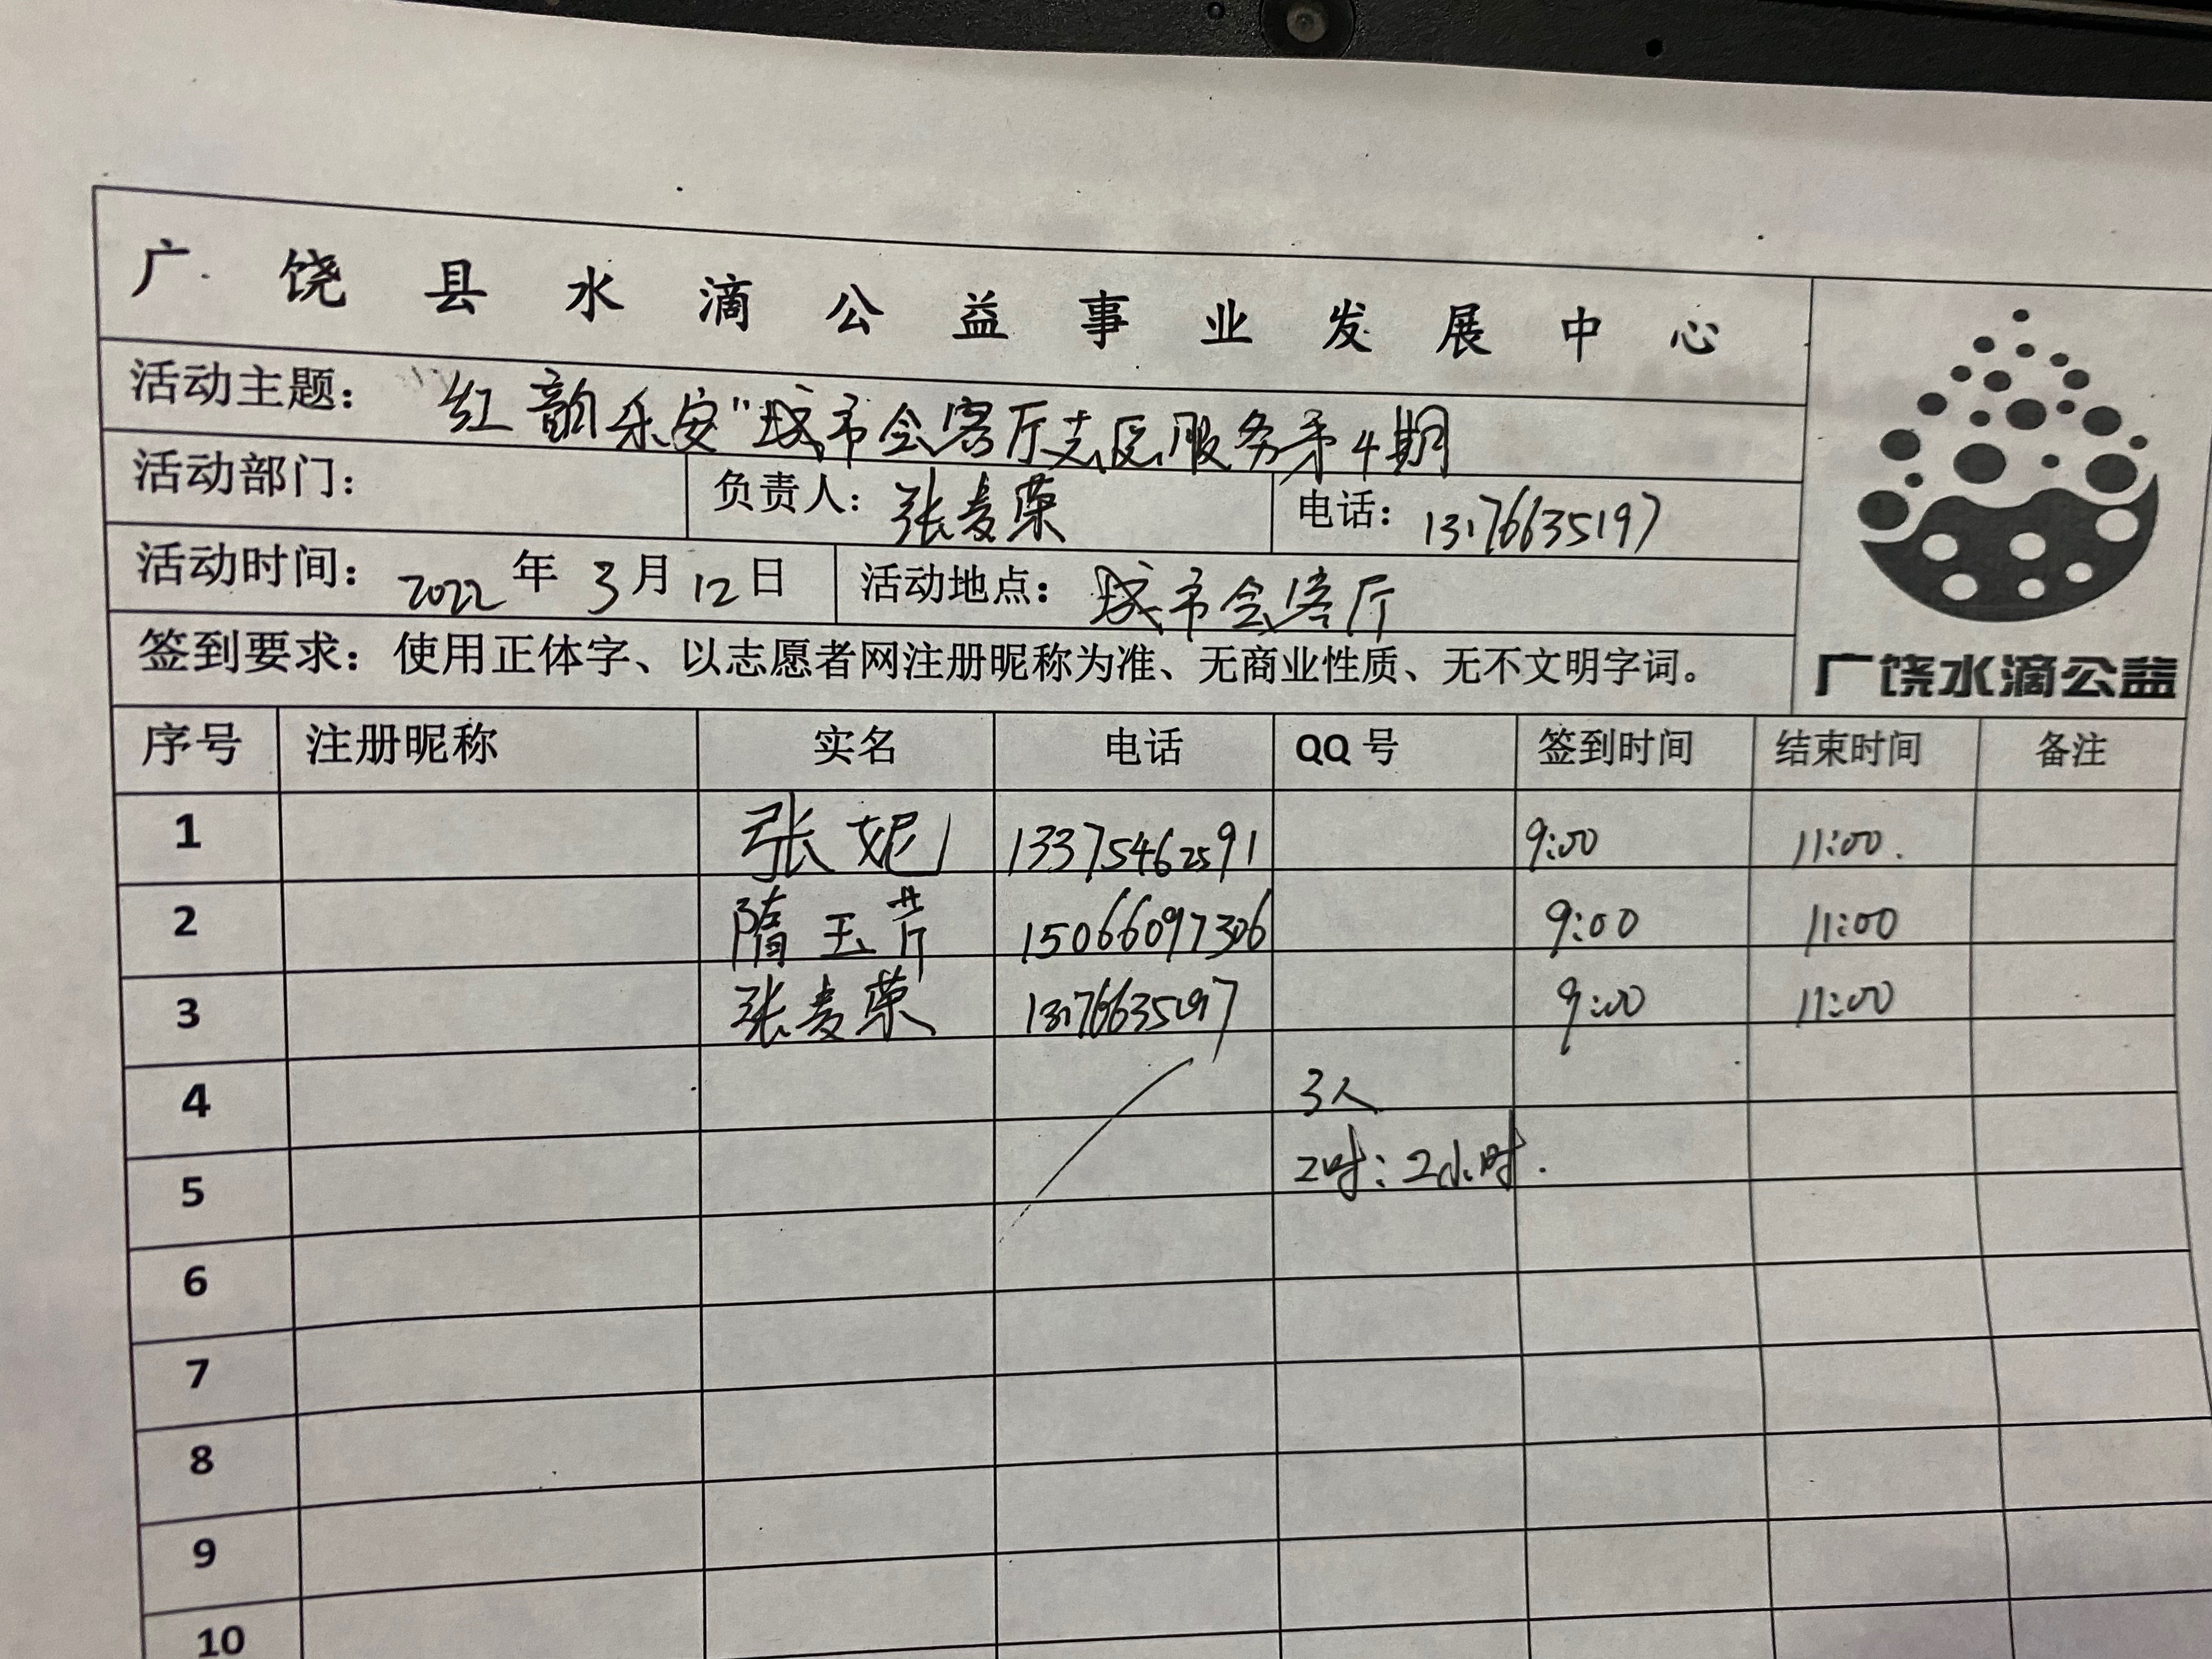 广饶县水滴公益事业发展中心
活动主题： "红韵乐安"城市会客厅志愿服务第4期
活动部门： 负责人：张麦荣 电话：13176635197
活动时间：2022年3月12日 活动地点：城市会客厅
签到要求：使用正体字、以志愿者网注册昵称为准、无商业性质、无不文明字词。
广饶水滴公益
序号 注册昵称 实名 电话 QQ号 签到时间 结束时间 备注
1 张妮 13375462591 9:00 11:00.
2 隋玉芹 15066097306 9:00 11:00
3 张麦荣 13176635197 9:00 11:00
4 3人
5 2时：2小时.
6
7
8
9
10